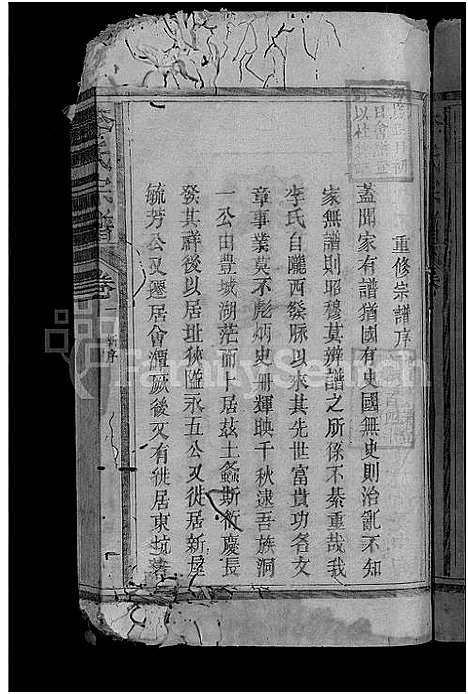 重修宗譜序
蓋聞家有譜猶國有史國無史則治亂不知
家無譜則昭穆莫辨譜之所係不綦重哉我
李氏自隴西發脉以來其先世富貴功名文
章事業莫不彪炳史冊輝映千秋逮吾族洞
一公由豐城湖茫而上居茲土螽斯衍慶長
發其祥後以居址狹隘永五公又徙居新屋
毓芳公又遷居會潭厥後又有徙居東坑
李氏宗譜 卷
序
FamilySearch